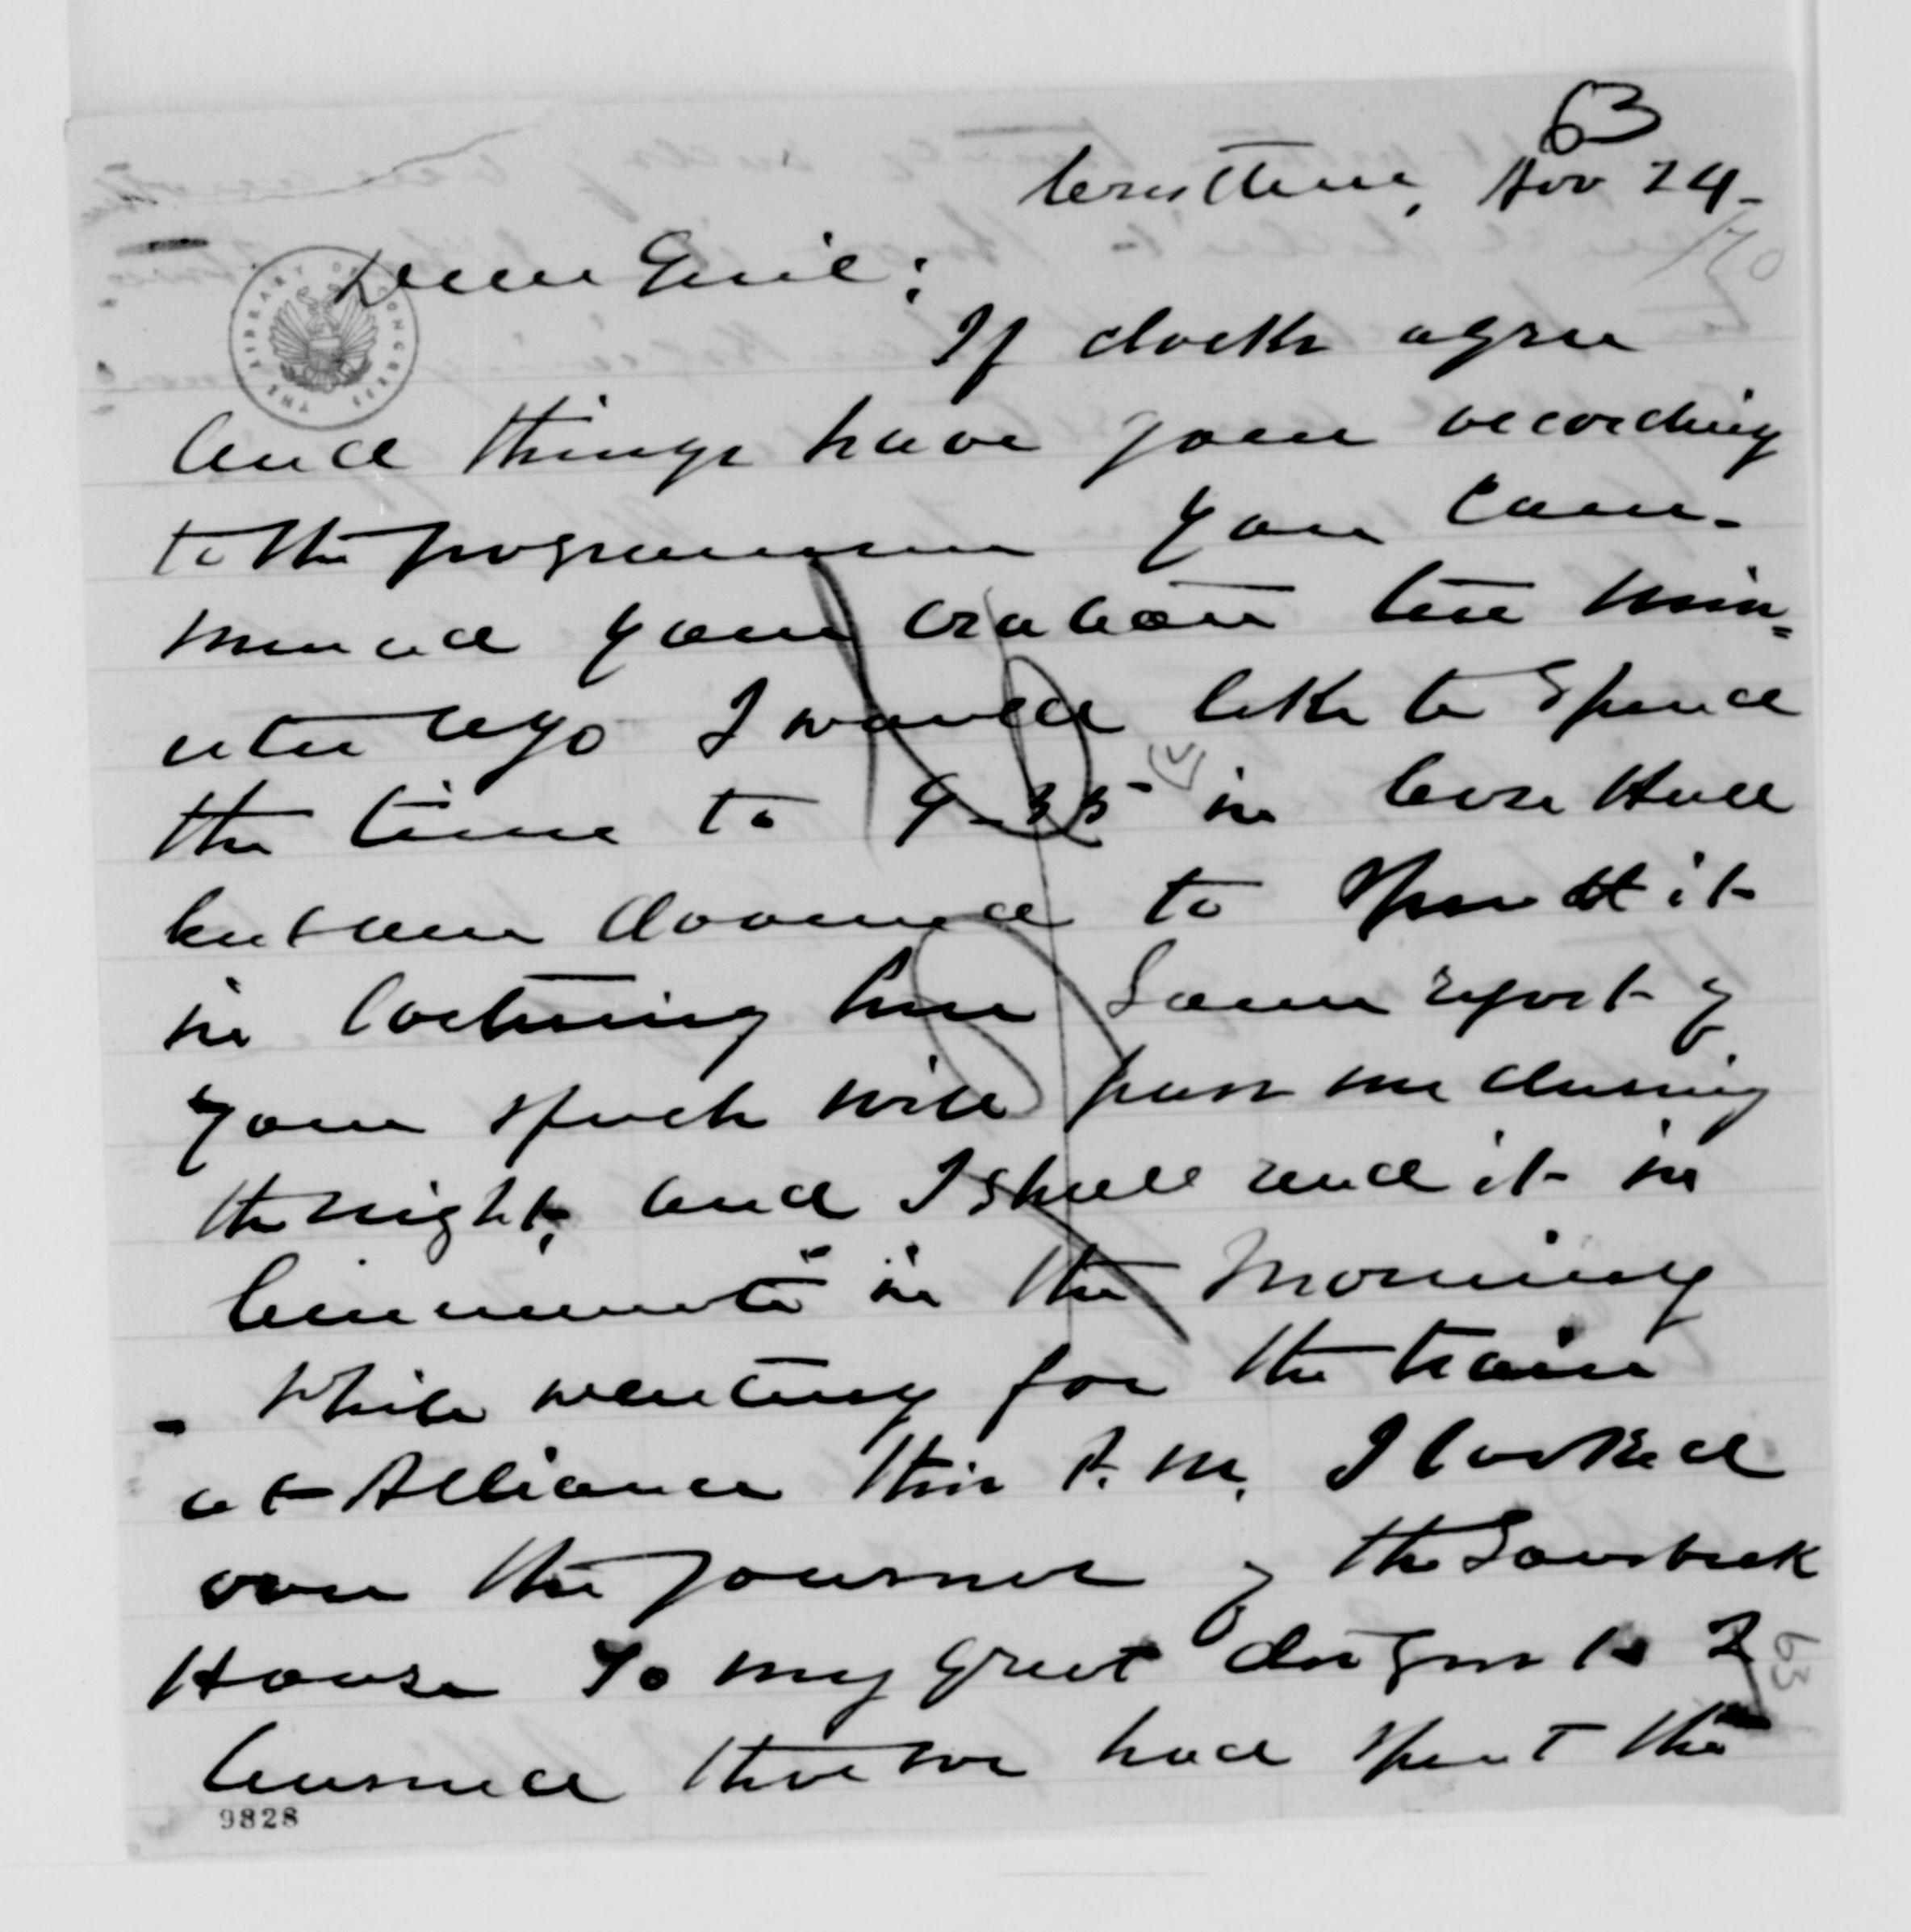 63
Crestline, Nov 24-
/70
Dear Genl:
If clocks agree
and things have gone according
to the programme you com-
menced your oration ten min=
utes ago I would like to spend
the time to 9-35 in Case Hall
but am doomed to spend it
in loitering here Some report of
your speech will pass me during
the night, and I shall read it in
Cincinnati in the morning
- While waiting for the train
at Alliance this P.M. I looked
over the Journal of the Sourbeck
House To my great disgust I
learned that we had spent the
63
9828
THE LIBRARY OF CONGRESS